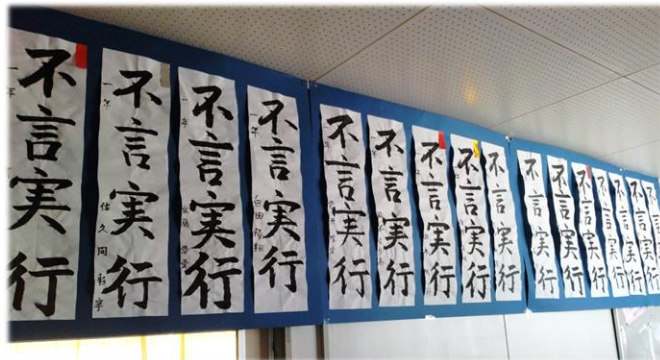 不言実行
一年
不言実行
一年
佐久間
不言実行
一年
不言実行
一年
不言実行
不言実行
不言実行
不言実行
不言実行
不言実行
不言実行
不言実行
不言実行
不言実行
不言実行